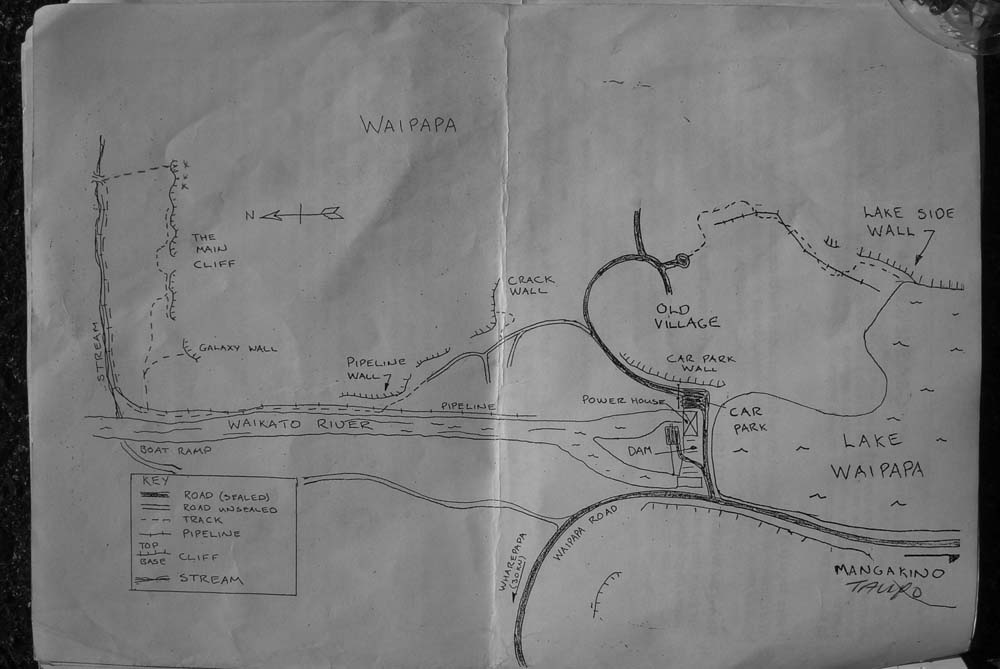 WAIPAPA
N
THE
MAIN
CLIFF
LAKE SIDE
WALL
CRACK
WALL
OLD
VILLAGE
STREAM
GALAXY WALL
PIPELINE
WALL
CAR PARK
WALL
PIPELINE
POWER HOUSE
CAR
PARK
WAIKATO RIVER
DAM
LAKE
WAIPAPA
BOAT RAMP
KEY
ROAD (SEALED)
ROAD UNSEALED
TRACK
PIPELINE
TOP
BASE
CLIFF
STREAM
WAIPAPA ROAD
WHAREPAPA
(30KM)
MANGAKINO
TAUPO